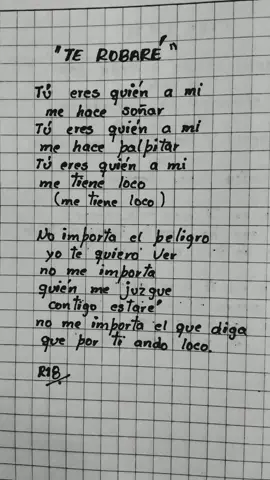 "TE ROBARÉ"
Tú eres quién a mi
me hace soñar
Tú eres quién a mi
me hace palpitar
Tú eres quién a mi
me tiene loco
(me tiene loco)
No importa el peligro
yo te quiero ver
no me importa
quién me juzgue
contigo estaré
no me importa el que diga
que por ti ando loco.
R18